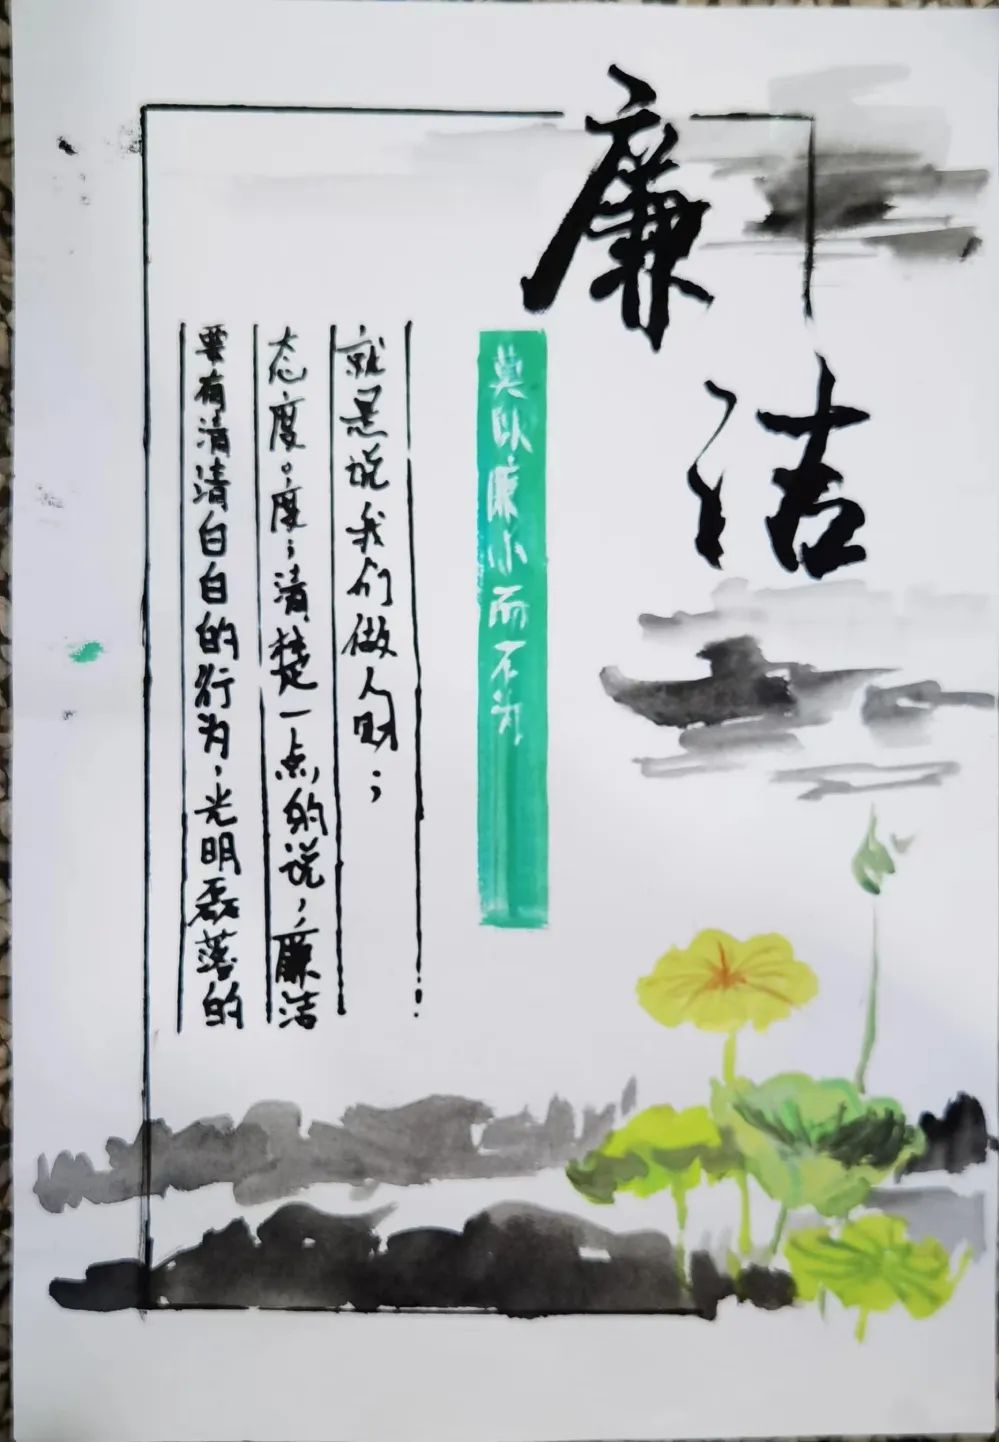 廉洁
莫以廉小而不为
就是说我们做人财；
态度。度；清楚一点的说，廉洁
要有清清白白的行为，光明磊落的